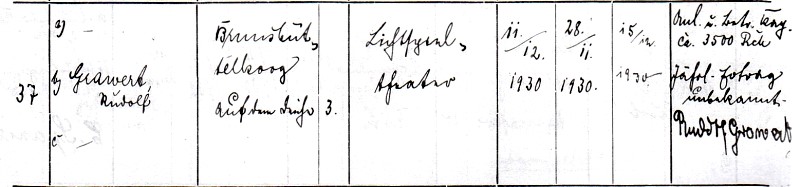 37
a) -
b) Grawert,
Rudolf
c -
Brunsbüt-
telkoog
Auf dem Deiche 3.
Lichtspiel-
theater
11.
12.
1930
28.
11.
1930.
15/12.
1930.
Anl. u. Betr. Kap.
ca. 3500 Rm
Jährl. Ertrag
unbekannt.
Rudolf Grawert